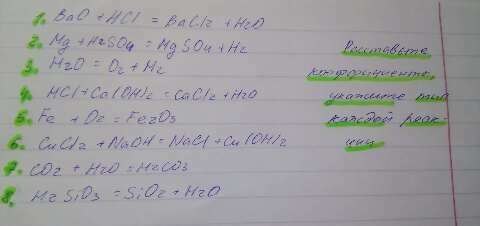 1. BaO + HCl = BaCl2 + H2O
2. Mg + H2SO4 = MgSO4 + H2
3. H2O = O2 + H2
4. HCl + Ca(OH)2 = CaCl2 + H2O
5. Fe + O2 = Fe2O3
6. CuCl2 + NaOH = NaCl + Cu(OH)2
7. CO2 + H2O = H2CO3
8. H2SiO3 = SiO2 + H2O
Расставьте
коэффициенты,
укажите тип
каждой реак-
ции